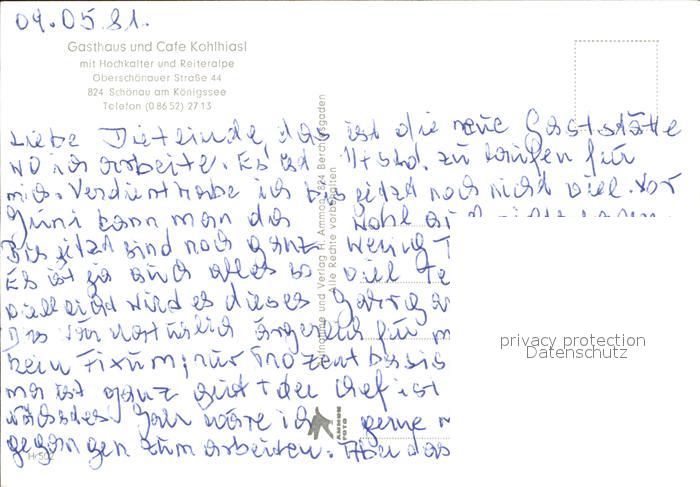 04.05.81.
Gasthaus und Cafe Kohlhiasl
mit Hochkalter und Reiteralpe
Oberschönauer Straße 44
824 Schönau am Königssee
Telefon (0 86 52) 27 13
Liebe Dietlinde, das ist die neue Gaststätte
wo ich arbeite. Es ist std. zu laufen für
mich. Verdient habe ich bis jetzt noch nicht viel. Vor
Juni kann man das wohl auch nicht
Bis jetzt sind noch ganz wenig T
Es ist ja auch alles so viel te
vielleicht wird es dieses Jahr gar
Das wär natürlich ärgerlich für m
kein Fixum, nur Prozentbasis
ist ganz gut + der Chef ist
nächstes Jahr wäre ich gerne n
gegangen zum arbeiten. Aber das
H 502
Aufnahme und Verlag H. Ammon, 824 Berchtesgaden
Alle Rechte vorbehalten
AMMON
FOTO
privacy protection
Datenschutz